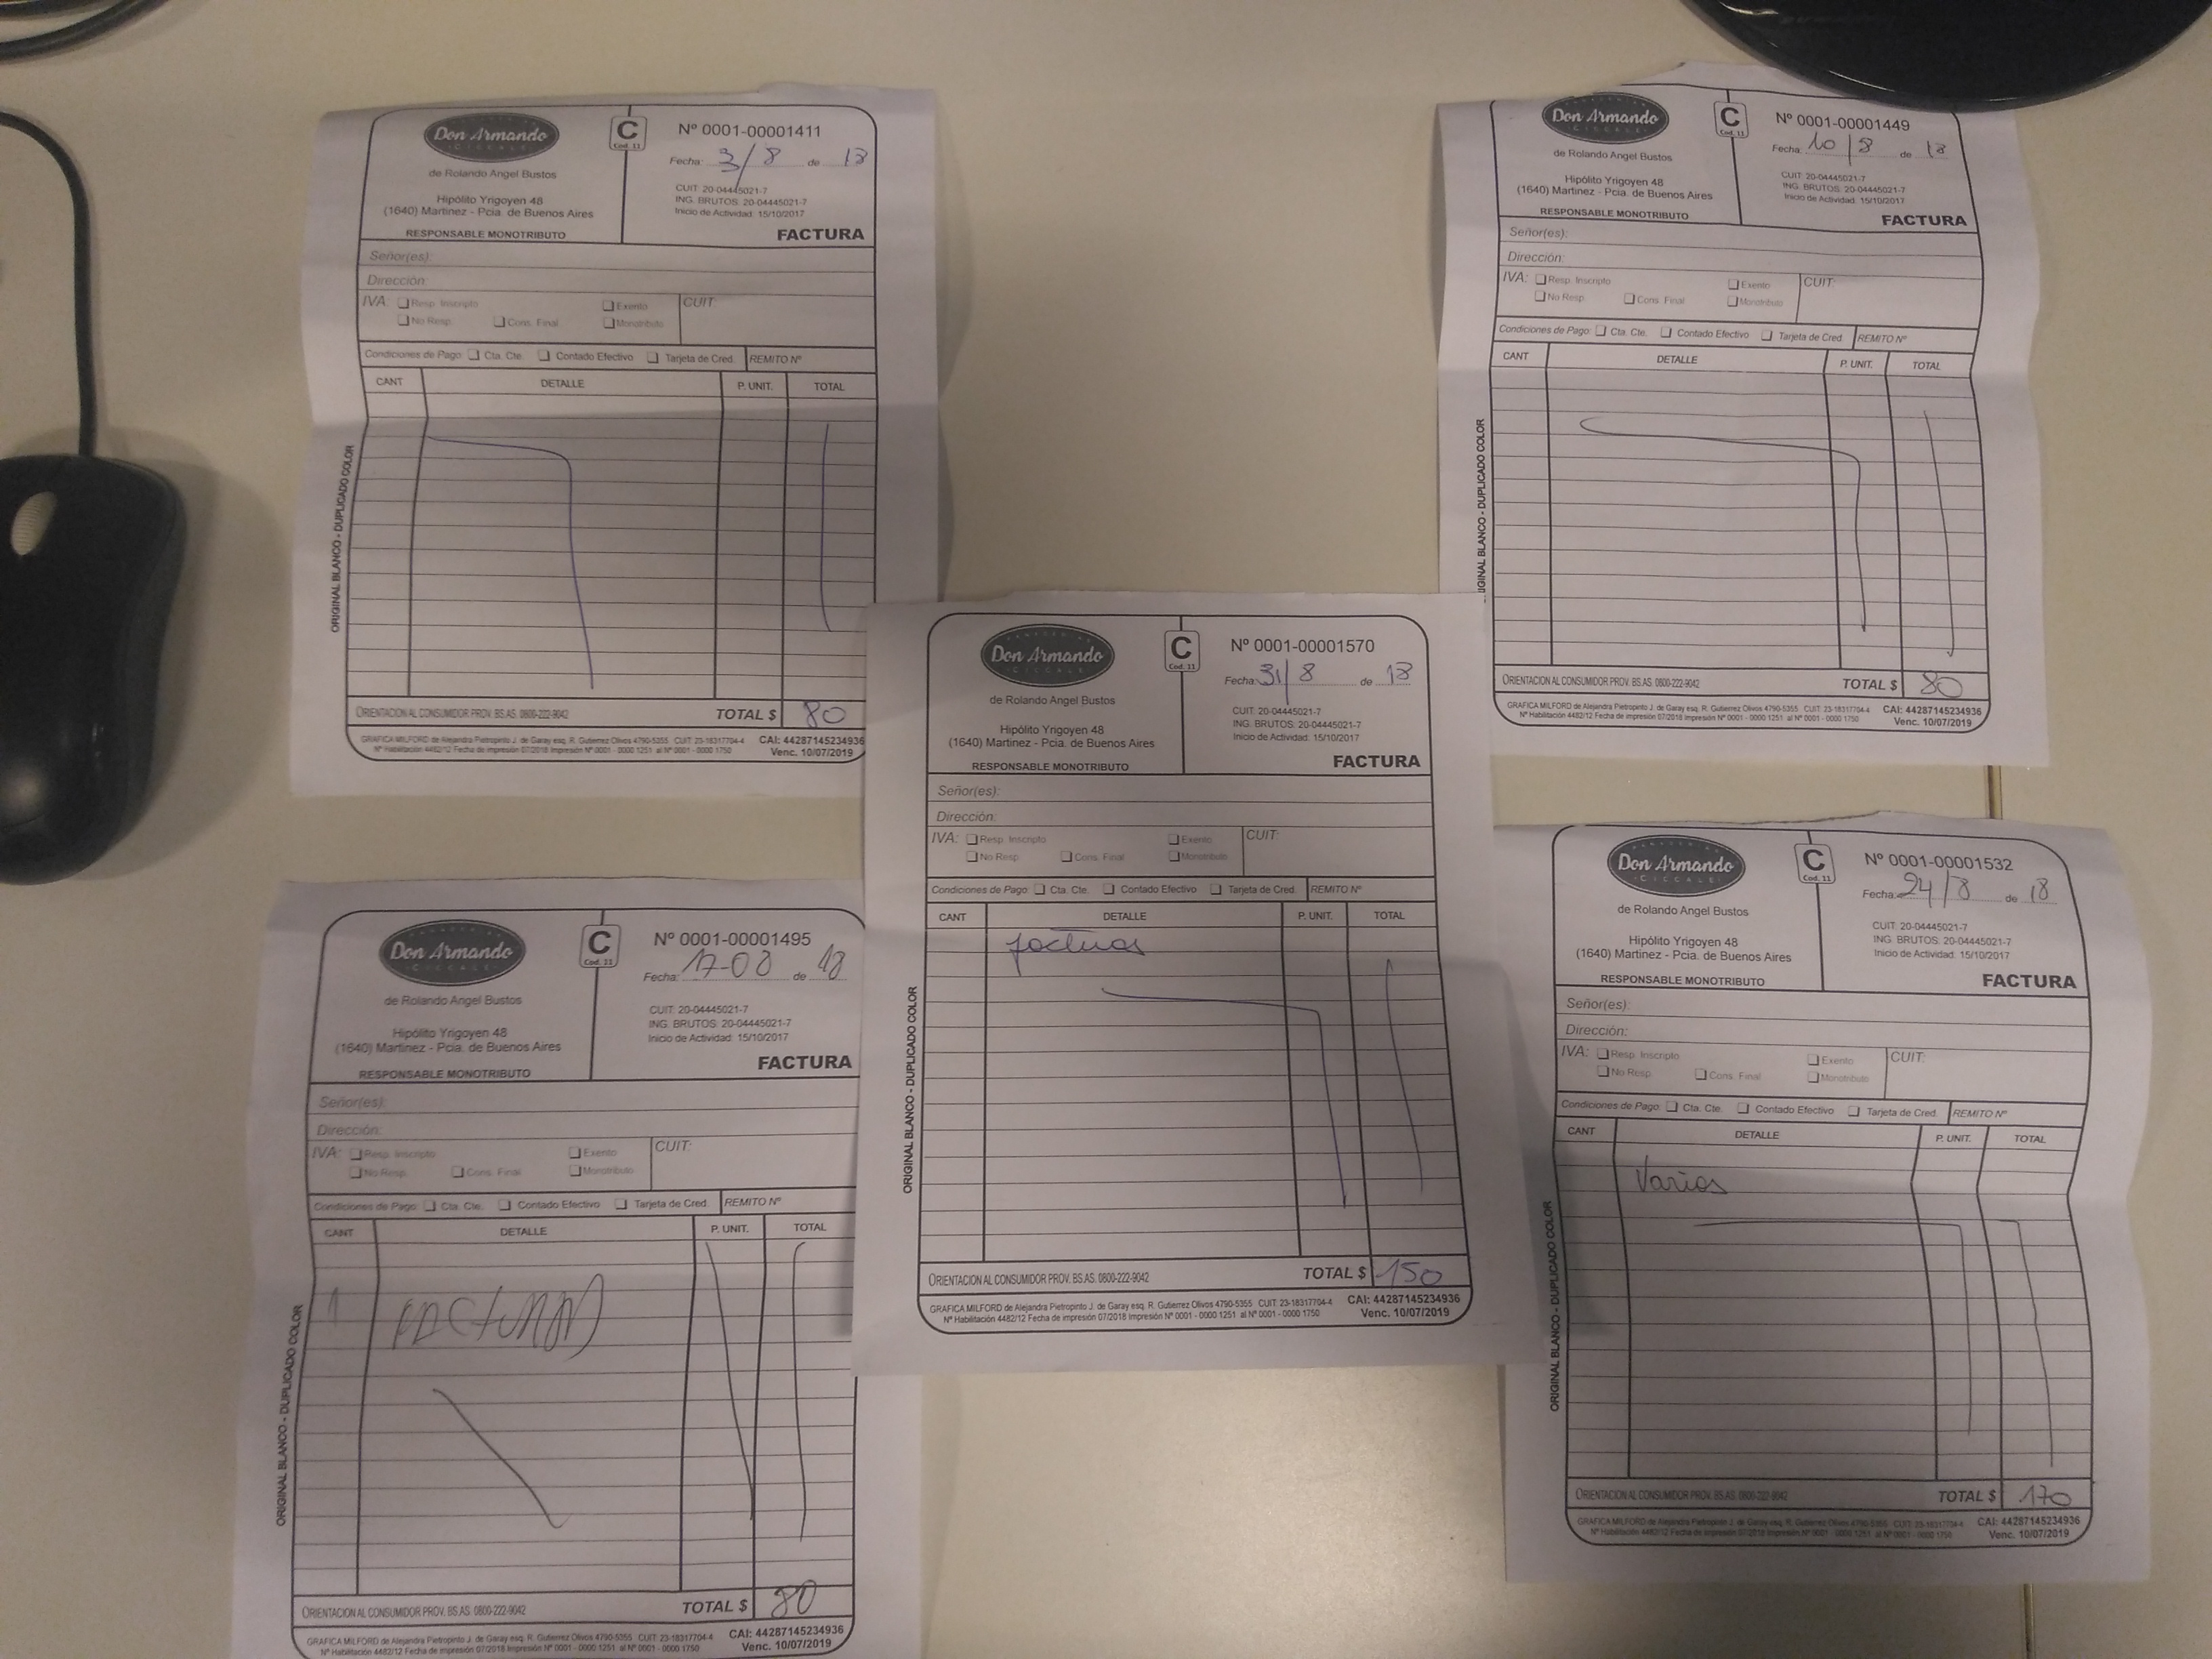 Don Armando
CICCALE
de Rolando Angel Bustos
Hipólito Yrigoyen 48
(1640) Martinez - Pcia. de Buenos Aires
RESPONSABLE MONOTRIBUTO
C
Cod. 11
Nº 0001-00001411
Fecha: 3/8 de 18
CUIT: 20-04445021-7
ING. BRUTOS: 20-04445021-7
Inicio de Actividad: 15/10/2017
FACTURA
Señor(es):
Dirección:
IVA: Resp. Inscripto Exento CUIT:
No Resp. Cons. Final Monotributo
Condiciones de Pago: Cta. Cte. Contado Efectivo Tarjeta de Cred. REMITO Nº
CANT DETALLE P. UNIT. TOTAL
ORIGINAL BLANCO - DUPLICADO COLOR
ORIENTACION AL CONSUMIDOR PROV. BS.AS. 0800-222-9042 TOTAL $ 80
GRAFICA MILFORD de Alejandra Pietropinto J. de Garay esq. R. Gutierrez Olivos 4790-5355 CUIT: 23-18317704-4 CAI: 44287145234936
Nº Habilitación 4482/12 Fecha de impresión 07/2018 Impresión Nº 0001 - 0000 1251 al Nº 0001 - 0000 1750 Venc. 10/07/2019
Don Armando
CICCALE
de Rolando Angel Bustos
Hipólito Yrigoyen 48
(1640) Martinez - Pcia. de Buenos Aires
RESPONSABLE MONOTRIBUTO
C
Cod. 11
Nº 0001-00001449
Fecha: 10/8 de 18
CUIT: 20-04445021-7
ING. BRUTOS: 20-04445021-7
Inicio de Actividad: 15/10/2017
FACTURA
Señor(es):
Dirección:
IVA: Resp. Inscripto Exento CUIT:
No Resp. Cons. Final Monotributo
Condiciones de Pago: Cta. Cte. Contado Efectivo Tarjeta de Cred. REMITO Nº
CANT DETALLE P. UNIT. TOTAL
ORIGINAL BLANCO - DUPLICADO COLOR
ORIENTACION AL CONSUMIDOR PROV. BS.AS. 0800-222-9042 TOTAL $ 80
GRAFICA MILFORD de Alejandra Pietropinto J. de Garay esq. R. Gutierrez Olivos 4790-5355 CUIT: 23-18317704-4 CAI: 44287145234936
Nº Habilitación 4482/12 Fecha de impresión 07/2018 Impresión Nº 0001 - 0000 1251 al Nº 0001 - 0000 1750 Venc. 10/07/2019
Don Armando
CICCALE
de Rolando Angel Bustos
Hipólito Yrigoyen 48
(1640) Martinez - Pcia. de Buenos Aires
RESPONSABLE MONOTRIBUTO
C
Cod. 11
Nº 0001-00001570
Fecha: 31/8 de 18
CUIT: 20-04445021-7
ING. BRUTOS: 20-04445021-7
Inicio de Actividad: 15/10/2017
FACTURA
Señor(es):
Dirección:
IVA: Resp. Inscripto Exento CUIT:
No Resp. Cons. Final Monotributo
Condiciones de Pago: Cta. Cte. Contado Efectivo Tarjeta de Cred. REMITO Nº
CANT DETALLE P. UNIT. TOTAL
facturas
ORIGINAL BLANCO - DUPLICADO COLOR
ORIENTACION AL CONSUMIDOR PROV. BS.AS. 0800-222-9042 TOTAL $ 150
GRAFICA MILFORD de Alejandra Pietropinto J. de Garay esq. R. Gutierrez Olivos 4790-5355 CUIT: 23-18317704-4 CAI: 44287145234936
Nº Habilitación 4482/12 Fecha de impresión 07/2018 Impresión Nº 0001 - 0000 1251 al Nº 0001 - 0000 1750 Venc. 10/07/2019
Don Armando
CICCALE
de Rolando Angel Bustos
Hipólito Yrigoyen 48
(1640) Martinez - Pcia. de Buenos Aires
RESPONSABLE MONOTRIBUTO
C
Cod. 11
Nº 0001-00001495
Fecha: 17-08 de 18
CUIT: 20-04445021-7
ING. BRUTOS: 20-04445021-7
Inicio de Actividad: 15/10/2017
FACTURA
Señor(es):
Dirección:
IVA: Resp. Inscripto Exento CUIT:
No Resp. Cons. Final Monotributo
Condiciones de Pago: Cta. Cte. Contado Efectivo Tarjeta de Cred. REMITO Nº
CANT DETALLE P. UNIT. TOTAL
1 FACTURAS
ORIGINAL BLANCO - DUPLICADO COLOR
ORIENTACION AL CONSUMIDOR PROV. BS.AS. 0800-222-9042 TOTAL $ 80
GRAFICA MILFORD de Alejandra Pietropinto J. de Garay esq. R. Gutierrez Olivos 4790-5355 CUIT: 23-18317704-4 CAI: 44287145234936
Nº Habilitación 4482/12 Fecha de impresión 07/2018 Impresión Nº 0001 - 0000 1251 al Nº 0001 - 0000 1750 Venc. 10/07/2019
Don Armando
CICCALE
de Rolando Angel Bustos
Hipólito Yrigoyen 48
(1640) Martinez - Pcia. de Buenos Aires
RESPONSABLE MONOTRIBUTO
C
Cod. 11
Nº 0001-00001532
Fecha: 24/8 de 18
CUIT: 20-04445021-7
ING. BRUTOS: 20-04445021-7
Inicio de Actividad: 15/10/2017
FACTURA
Señor(es):
Dirección:
IVA: Resp. Inscripto Exento CUIT:
No Resp. Cons. Final Monotributo
Condiciones de Pago: Cta. Cte. Contado Efectivo Tarjeta de Cred. REMITO Nº
CANT DETALLE P. UNIT. TOTAL
Varios
ORIGINAL BLANCO - DUPLICADO COLOR
ORIENTACION AL CONSUMIDOR PROV. BS.AS. 0800-222-9042 TOTAL $ 170
GRAFICA MILFORD de Alejandra Pietropinto J. de Garay esq. R. Gutierrez Olivos 4790-5355 CUIT: 23-18317704-4 CAI: 44287145234936
Nº Habilitación 4482/12 Fecha de impresión 07/2018 Impresión Nº 0001 - 0000 1251 al Nº 0001 - 0000 1750 Venc. 10/07/2019